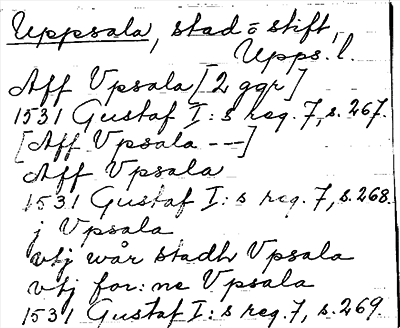 Uppsala, stad o stift,
Upps. l.
Aff Vpsala [2 ggr]
1531 Gustaf I: s reg. 7, s. 267.
[Aff Vpsala ---]
Aff Vpsala
1531 Gustaf I: s reg. 7, s. 268.
j Vpsala
vtj wår stadh Vpsala
vtj for: ne Vpsala
1531 Gustaf I: s reg. 7, s. 269.